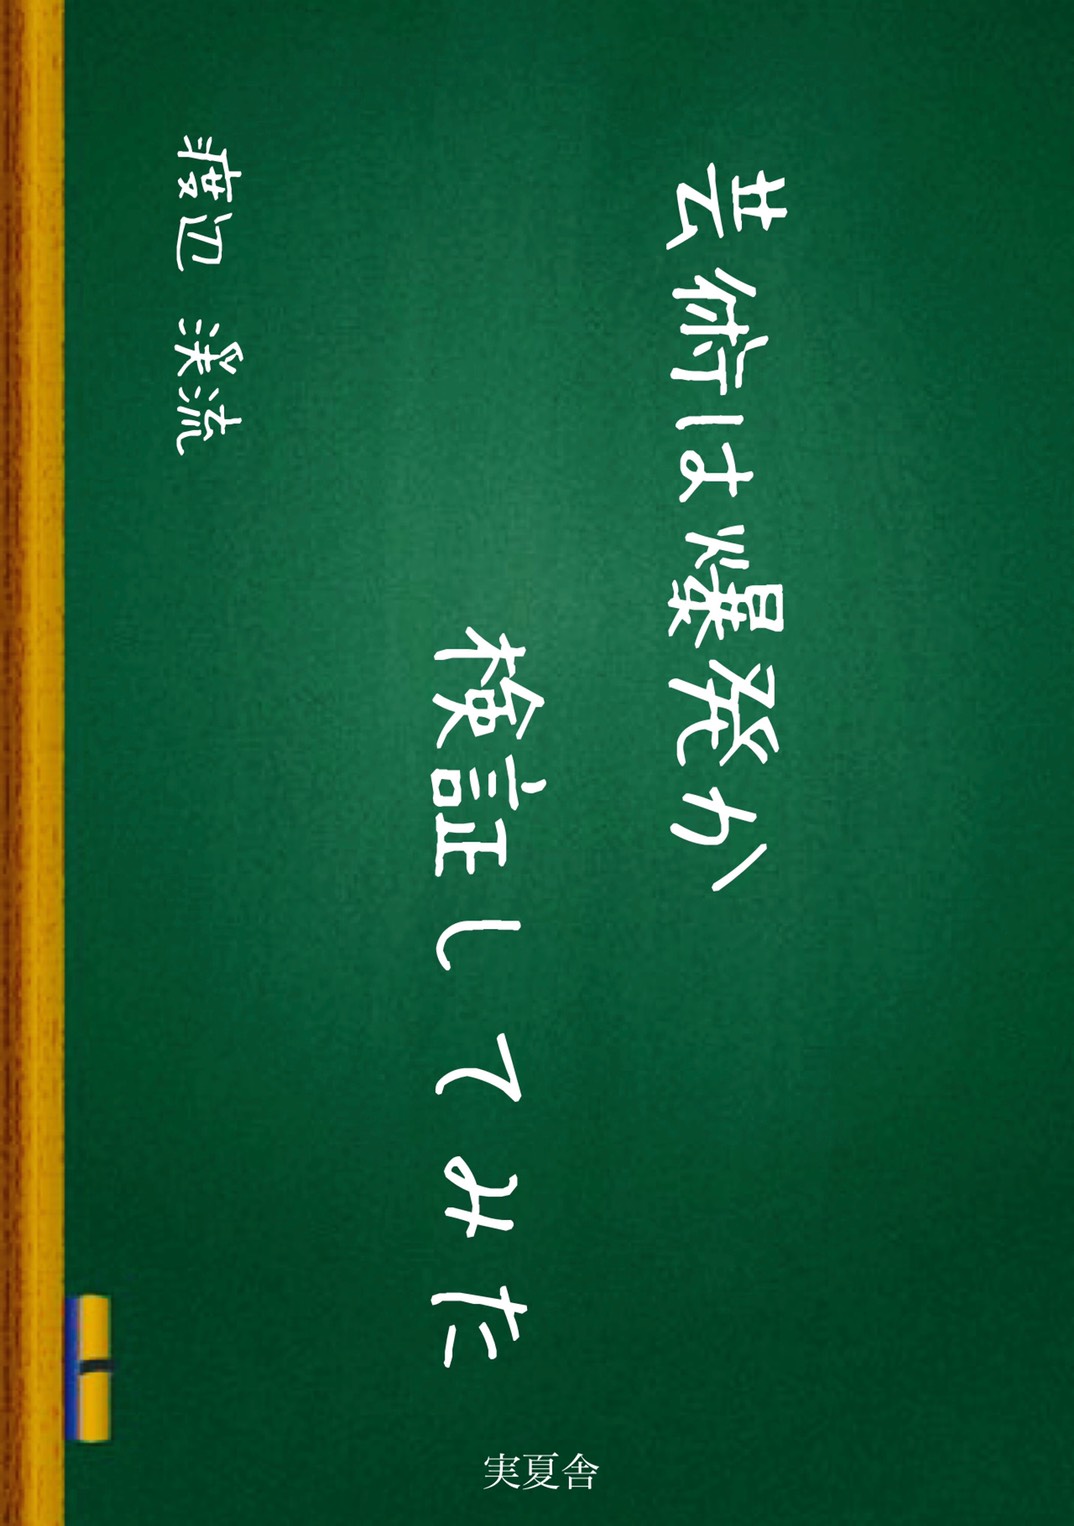 芸術は爆発か
検証してみた
渡辺 渓流
実夏舎